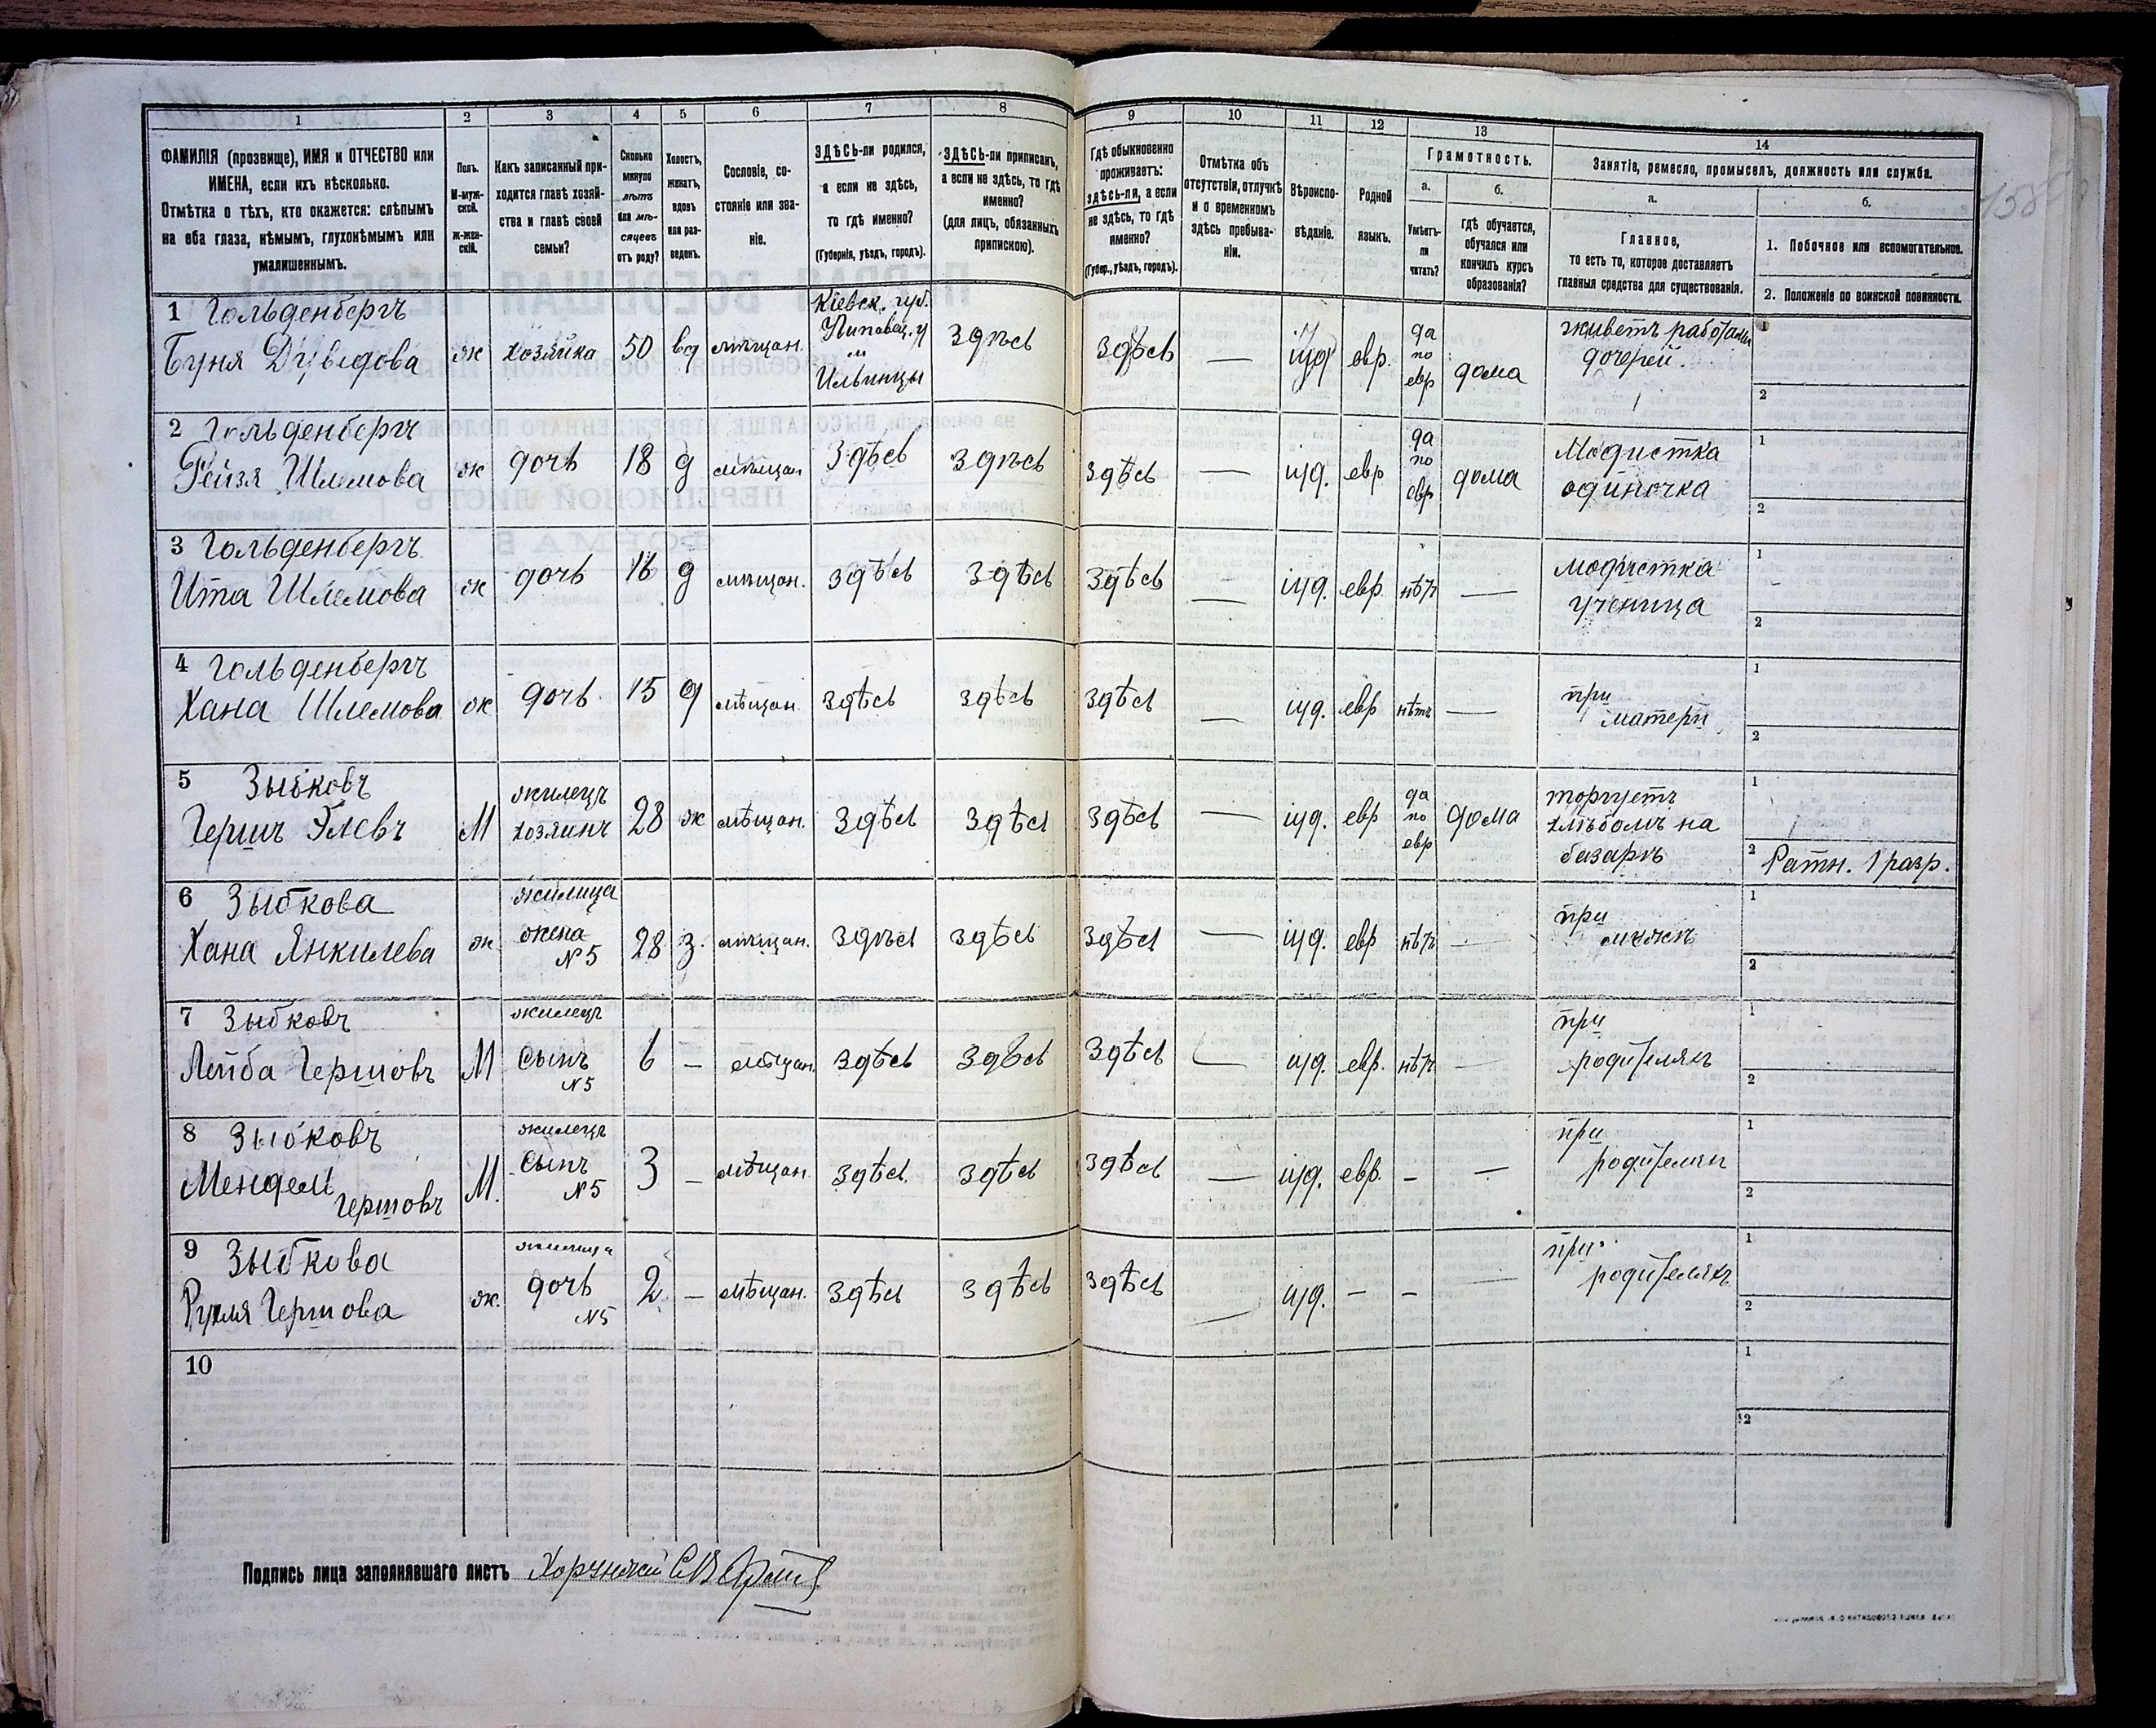 1
2
3
4
5
6
7
8
9
10
11
12
13
14
ФАМИЛІЯ (прозвище), ИМЯ и ОТЧЕСТВО или
ИМЕНА, если ихъ нѣсколько.
Отмѣтка о тѣхъ, кто окажется: слѣпымъ
на оба глаза, нѣмымъ, глухонѣмымъ или
умалишеннымъ.
Полъ.
М-муж-
ской.
ж-жен-
скій.
Какъ записанный при-
ходится главѣ хозяй-
ства и главѣ своей
семьи?
Сколько
минуло
лѣтъ
или мѣ-
сяцевъ
отъ роду?
Холостъ,
женатъ,
вдовъ
или раз-
веденъ.
Сословіе, со-
стояніе или зва-
ніе.
ЗДѢСЬ-ли родился,
а если не здѣсь,
то гдѣ именно?
(Губернія, уѣздъ, городъ).
ЗДѢСЬ-ли приписанъ,
а если не здѣсь, то гдѣ
именно?
(для лицъ, обязанныхъ
припискою).
Гдѣ обыкновенно
проживаетъ:
здѣсь-ли, а если
не здѣсь, то гдѣ
именно?
(Губер., уѣздъ, городъ).
Отмѣтка объ
отсутствіи, отлучкѣ
и о временномъ
здѣсь пребыва-
ніи.
Вѣроиспо-
вѣданіе.
Родной
языкъ.
Грамотность.
а.
Умѣетъ-
ли
читать?
б.
гдѣ обучается,
обучался или
кончилъ курсъ
образованія?
Занятіе, ремесло, промыселъ, должность или служба.
а.
Главное,
то есть то, которое доставляетъ
главныя средства для существованія.
б.
1. Побочное или вспомогательное.
2. Положеніе по воинской повинности.
1 Гольденбергъ
Буня Дуведова
ж
хозяйка
50
вд
мѣщан.
Кіевск. губ.
Липовец. у
м
Ильинцы
Здѣсь
Здѣсь
—
іуд
евр.
да
по
евр
дома
живетъ работами
дочерей.
1
2
2 Гольденбергъ
Рейзя Шлемова
ж
дочь
18
д
мѣщан
Здѣсь
Здѣсь
здѣсь
—
іуд.
евр
да
по
евр
дома
Модистка
одиночка
1
2
3 Гольденбергъ
Ита Шлемова
ж
дочь
16
д
мѣщан.
здѣсь
здѣсь
здѣсь
—
іуд.
евр.
нѣтъ
—
модистка
ученица
1
2
4 Гольденбергъ
Хана Шлемова
ж
дочь
15
д
мѣщан.
здѣсь
здѣсь
здѣсь
—
іуд.
евр
нѣтъ
—
при
матери
1
2
5 Зыбковъ
Гершъ Элевъ
М
жилецъ
хозяинъ
28
ж
мѣщан.
здѣсь
здѣсь
здѣсь
—
іуд.
евр
да
по
евр
дома
торгуетъ
хлѣбомъ на
базарѣ
1
2 Ратн. 1 разр.
6 Зыбкова
Хана Янкилева
ж
жилица
жена
№ 5
28
з.
мѣщан.
здѣсь
здѣсь
здѣсь
—
іуд.
евр
нѣтъ
—
при
мужѣ
1
2
7 Зыбковъ
Лейба Гершовъ
М
жилецъ
сынъ
№ 5
6
–
мѣщан.
здѣсь
здѣсь
здѣсь
—
іуд.
евр.
нѣтъ
—
при
родителяхъ
1
2
8 Зыбковъ
Мендель
Гершовъ
М.
жилецъ
сынъ
№ 5
3
–
мѣщан.
здѣсь.
здѣсь
здѣсь
—
іуд.
евр.
–
—
при
родителяхъ
1
2
9 Зыбкова
Гершова
ж.
жилица
дочь
№ 5
2
–
мѣщан.
здѣсь
здѣсь
здѣсь
—
іуд.
–
–
—
при
родителяхъ
1
2
10
1
2
Подпись лица заполнявшаго листъ